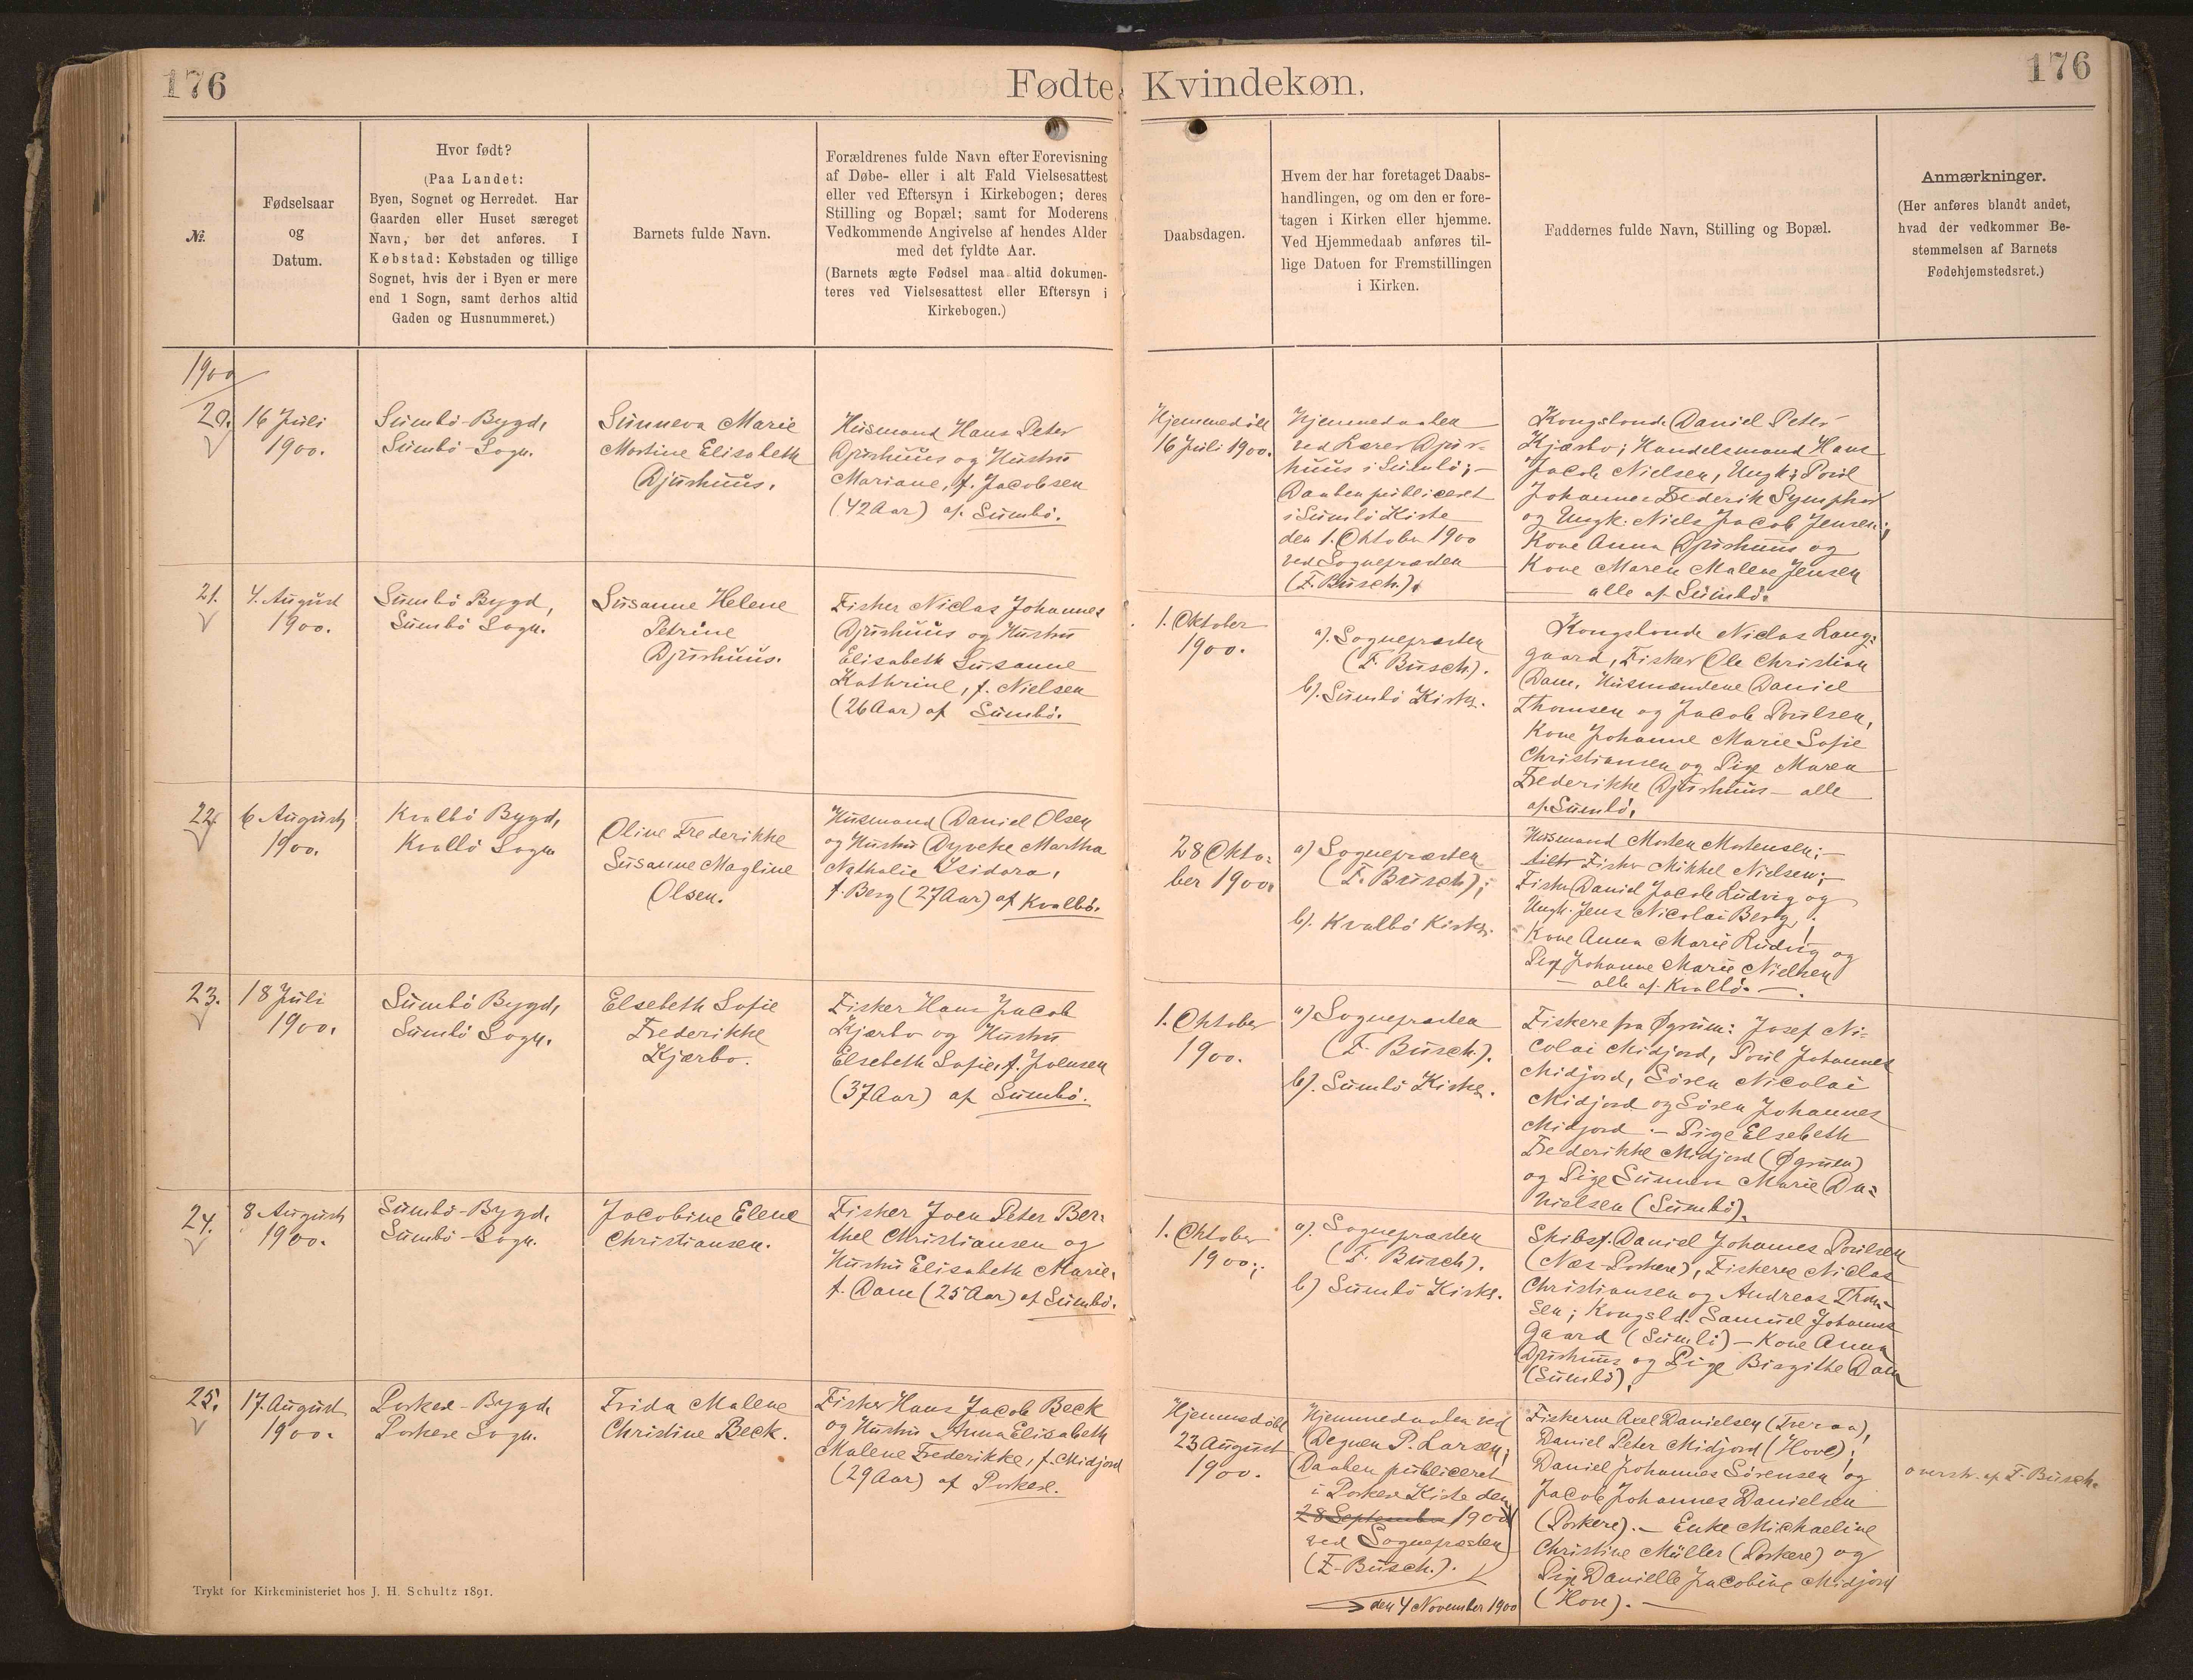 176
Fødte Kvindekøn.
176
№.
Fødselsaar
og
Datum.
Hvor født?
(Paa Landet:
Byen, Sognet og Herredet. Har
Gaarden eller Huset særeget
Navn, bør det anføres. I
Købstad: Købstaden og tillige
Sognet, hvis der i Byen er mere
end 1 Sogn, samt derhos altid
Gaden og Husnummeret.)
Barnets fulde Navn.
Forældrenes fulde Navn efter Forevisning
af Døbe- eller i alt Fald Vielsesattest
eller ved Eftersyn i Kirkebogen; deres
Stilling og Bopæl; samt for Moderens
Vedkommende Angivelse af hendes Alder
med det fyldte Aar.
(Barnets ægte Fødsel maa altid dokumen-
teres ved Vielsesattest eller Eftersyn i
Kirkebogen.)
Daabsdagen.
Hvem der har foretaget Daabs-
handlingen, og om den er fore-
tagen i Kirken eller hjemme.
Ved Hjemmedaab anføres til-
lige Datoen for Fremstillingen
i Kirken.
Faddernes fulde Navn, Stilling og Bopæl.
Anmærkninger.
(Her anføres blandt andet,
hvad der vedkommer Be-
stemmelsen af Barnets
Fødehjemstedsret.)
1900
20.
16 Juli
1900.
Sumbö-Bygd,
Sumbö-Sogn.
Sunneva Marie
Martine Elisabeth
Djurhuus.
Husmand Hans Peter
Djurhuus og Hustru
Mariane, f. Jacobsen
(42 Aar) af Sumbö.
Hjemmedöbt
16 Juli 1900.
Hjemmedaaben
ved Lærer Djur-
huus i Sumbö;-
Daaben publiceret
i Sumbö Kirke
den 1. Oktober 1900
ved Sognepræsten
(F. Busch).
Kongsbonde Daniel Peter
Kjærbo; Handelsmand Hans
Jacob Nielsen, Ungk: Poul
Johannes Frederik Symphor
og Ungk. Niels Jacob Jensen;
Kone Anna Djurhuus og
Kone Maren Malene Jensen
alle af Sumbö.
21.
4. August
1900.
Sumbö Bygd,
Sumbö Sogn.
Susanne Helene
Petrine
Djurhuus.
Fisker Niclas Johannes
Djurhuus og Hustru
Elisabeth Susanne
Kathrine, f. Nielsen
(26 Aar) af Sumbö.
1. Oktober
1900.
a). Sognepræsten
(F. Busch).
b). Sumbö Kirke.
Kongsbonde Niclas Lang:
gaard, Fisker Ole Christian
Dam, Husmændene Daniel
Thomsen og Jacob Poulsen,
Kone Johanne Marie Sofie
Christiansen og Pige Maren
Frederikke Djurhuus - alle
af Sumbö.
22.
6 August
1900.
Kvalbö Bygd,
Kvalbö Sogn
Oline Frederikke
Susanne Magline
Olsen.
Husmand Daniel Olsen
og Hustru Dyveke Martha
Nathalie Isidora,
f. Berg (27 Aar) af Kvalbö.
28 Okto:
ber 1900.
a) Sognepræsten
(F. Busch);
b). Kvalbö Kirke.
Husmand Morten Mortensen;-
Fisker Mikkel Nielsen;-
Fisker Daniel Jacob Ludvig og
Ungk. Jens Nicolai Berg;
Kone Anna Marie Ludvig og
Pige Johanne Marie Nielsen
- alle af Kvalbö. -
23.
18 Juli
1900.
Sumbö Bygd,
Sumbö Sogn.
Elsebeth Sofie
Frederikke
Kjærbo.
Fisker Hans Jacob
Kjærbo og Hustru
Elsebeth Sofie, f. Joensen
(37 Aar) af Sumbö.
1. Oktober
1900.
a) Sognepræsten
(F. Busch).
b). Sumbö Kirke.
Fiskere fra Øgrum: Josef Ni:
colai Midjord, Poul Johannes
Midjord, Sören Nicolai
Midjord og Sören Johannes
Midjord - Pige Elsebeth
Frederikke Midjord (Øgrum)
og Pige Sunneva Marie Da:
nielsen (Sumbö).
24.
8 August
1900.
Sumbö-Bygd,
Sumbö-Sogn.
Jacobine Elene
Christiansen.
Fisker Joen Peter Ber:
thel Christiansen og
Hustru Elisabeth Marie,
f. Dam (25 Aar) af Sumbö.
1. Oktober
1900;
a). Sognepræsten
(F. Busch).
b) Sumbö Kirke.
Skibsf. Daniel Johannes Poulsen
(Næs-Porkere), Fiskere Niclas
Christiansen og Andreas Thom-
sen; Kongsbd. Samuel Johannes
Gaard (Sumbö) - Kone Anna
Djurhuus og Pige Birgithe Dam
(Sumbö).
25.
17. August
1900.
Porkere-Bygd,
Porkere Sogn.
Frida Malene
Christine Beck.
Fisker Hans Jacob Beck
og Hustru Anna Elisabeth
Malene Frederikke, f. Midjord
(29 Aar) af Porkere.
Hjemmedöbt
23 August
1900.
Hjemmedaaben ved
Degnen P. Larsen;
Daaben publiceret
i Porkere Kirke den
28 September 1900
ved Sognepræsten
(F. Busch).
den 4 November 1900
Fiskerne Axel Danielsen (Tveraa),
Daniel Peter Midjord (Hove);
Daniel Johannes Sörensen og
Jacob Johannes Danielsen
(Porkere). - Enke Michaeline
Christine Müller (Porkere) og
Pige Danielle Jacobine Midjord
(Hove). -
overstr. af F. Busch.
Trykt for Kirkeministeriet hos J. H. Schultz 1891.